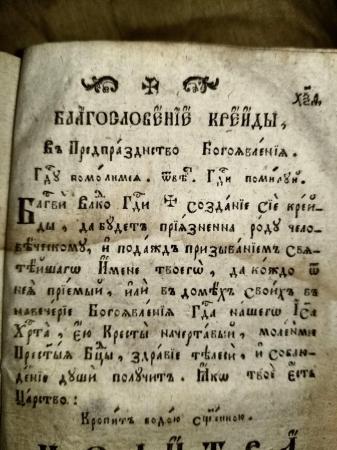 хз҃д.
БЛАГОСЛОВЕ́НЇЕ КРЕ́ИДЫ,
Въ Предпра́зднство Богоѧвле́нїѧ.
Гдⷭ҇у помо́лимсѧ. Ѿвѣ́т. Гдⷭ҇и поми́луй.
Багⷭ҇ви́ Влⷣко Гдⷭ҇и ✠ созда́нїе сїѐ кре́й-
ды, да бу́детъ прїѧ́зненна ро́ду чело-
вѣ́ческому, и҆ пода́ждь призыва́нїемъ Свѧ-
тѣ́йшагѡ И҆́мене твоегѡ̀, да ко́ждо ѿ
неѧ̀ прїе́мый, и҆лѝ в домѣ́хъ свои́хъ в
наве́черїе Богоѧвле́нїѧ Гдⷭ҇а на́шегѡ І҆и҃са
Хрⷭ҇та̀, є҆́ю Кресты̀ начерта́вый, моле́нми
Престы́ѧ Бцⷣы, здра́вїе тѣ́леси, и҆ соблю-
де́нїе души̂ полу́читъ. Ꙗ҆́кѡ твоѐ є҆́сть
Ца́рство:
Кропи́тъ водо́ю сщ҃е́нною.